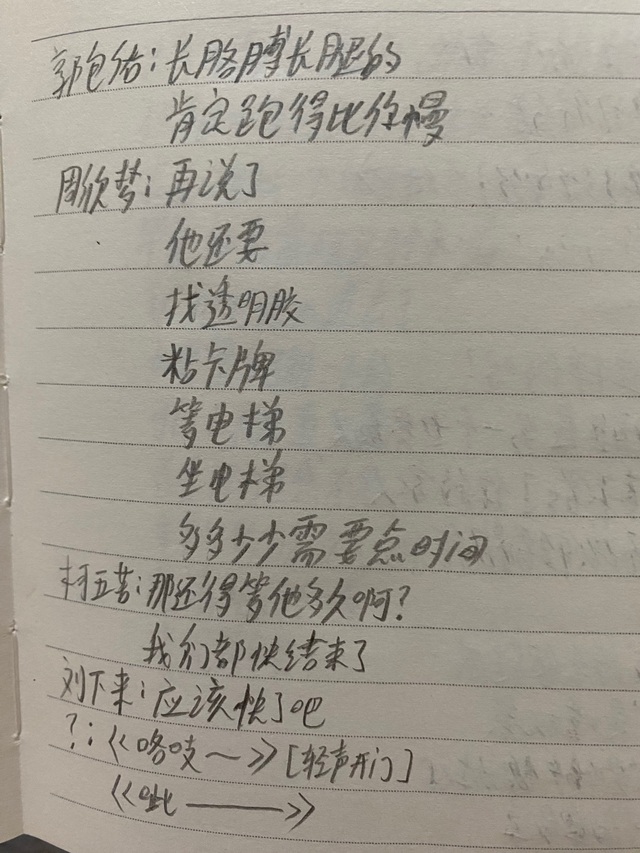 郭包佑：长胳膊长腿的
肯定跑得比你慢
周欣梦：再说了
他还要
找透明胶
粘卡牌
等电梯
坐电梯
多多少少需要点时间
村五苦：那还得等他多久啊？
我们都快结束了
刘下来：应该快了吧
？：《咯吱～》[轻声开门]
《呲——》